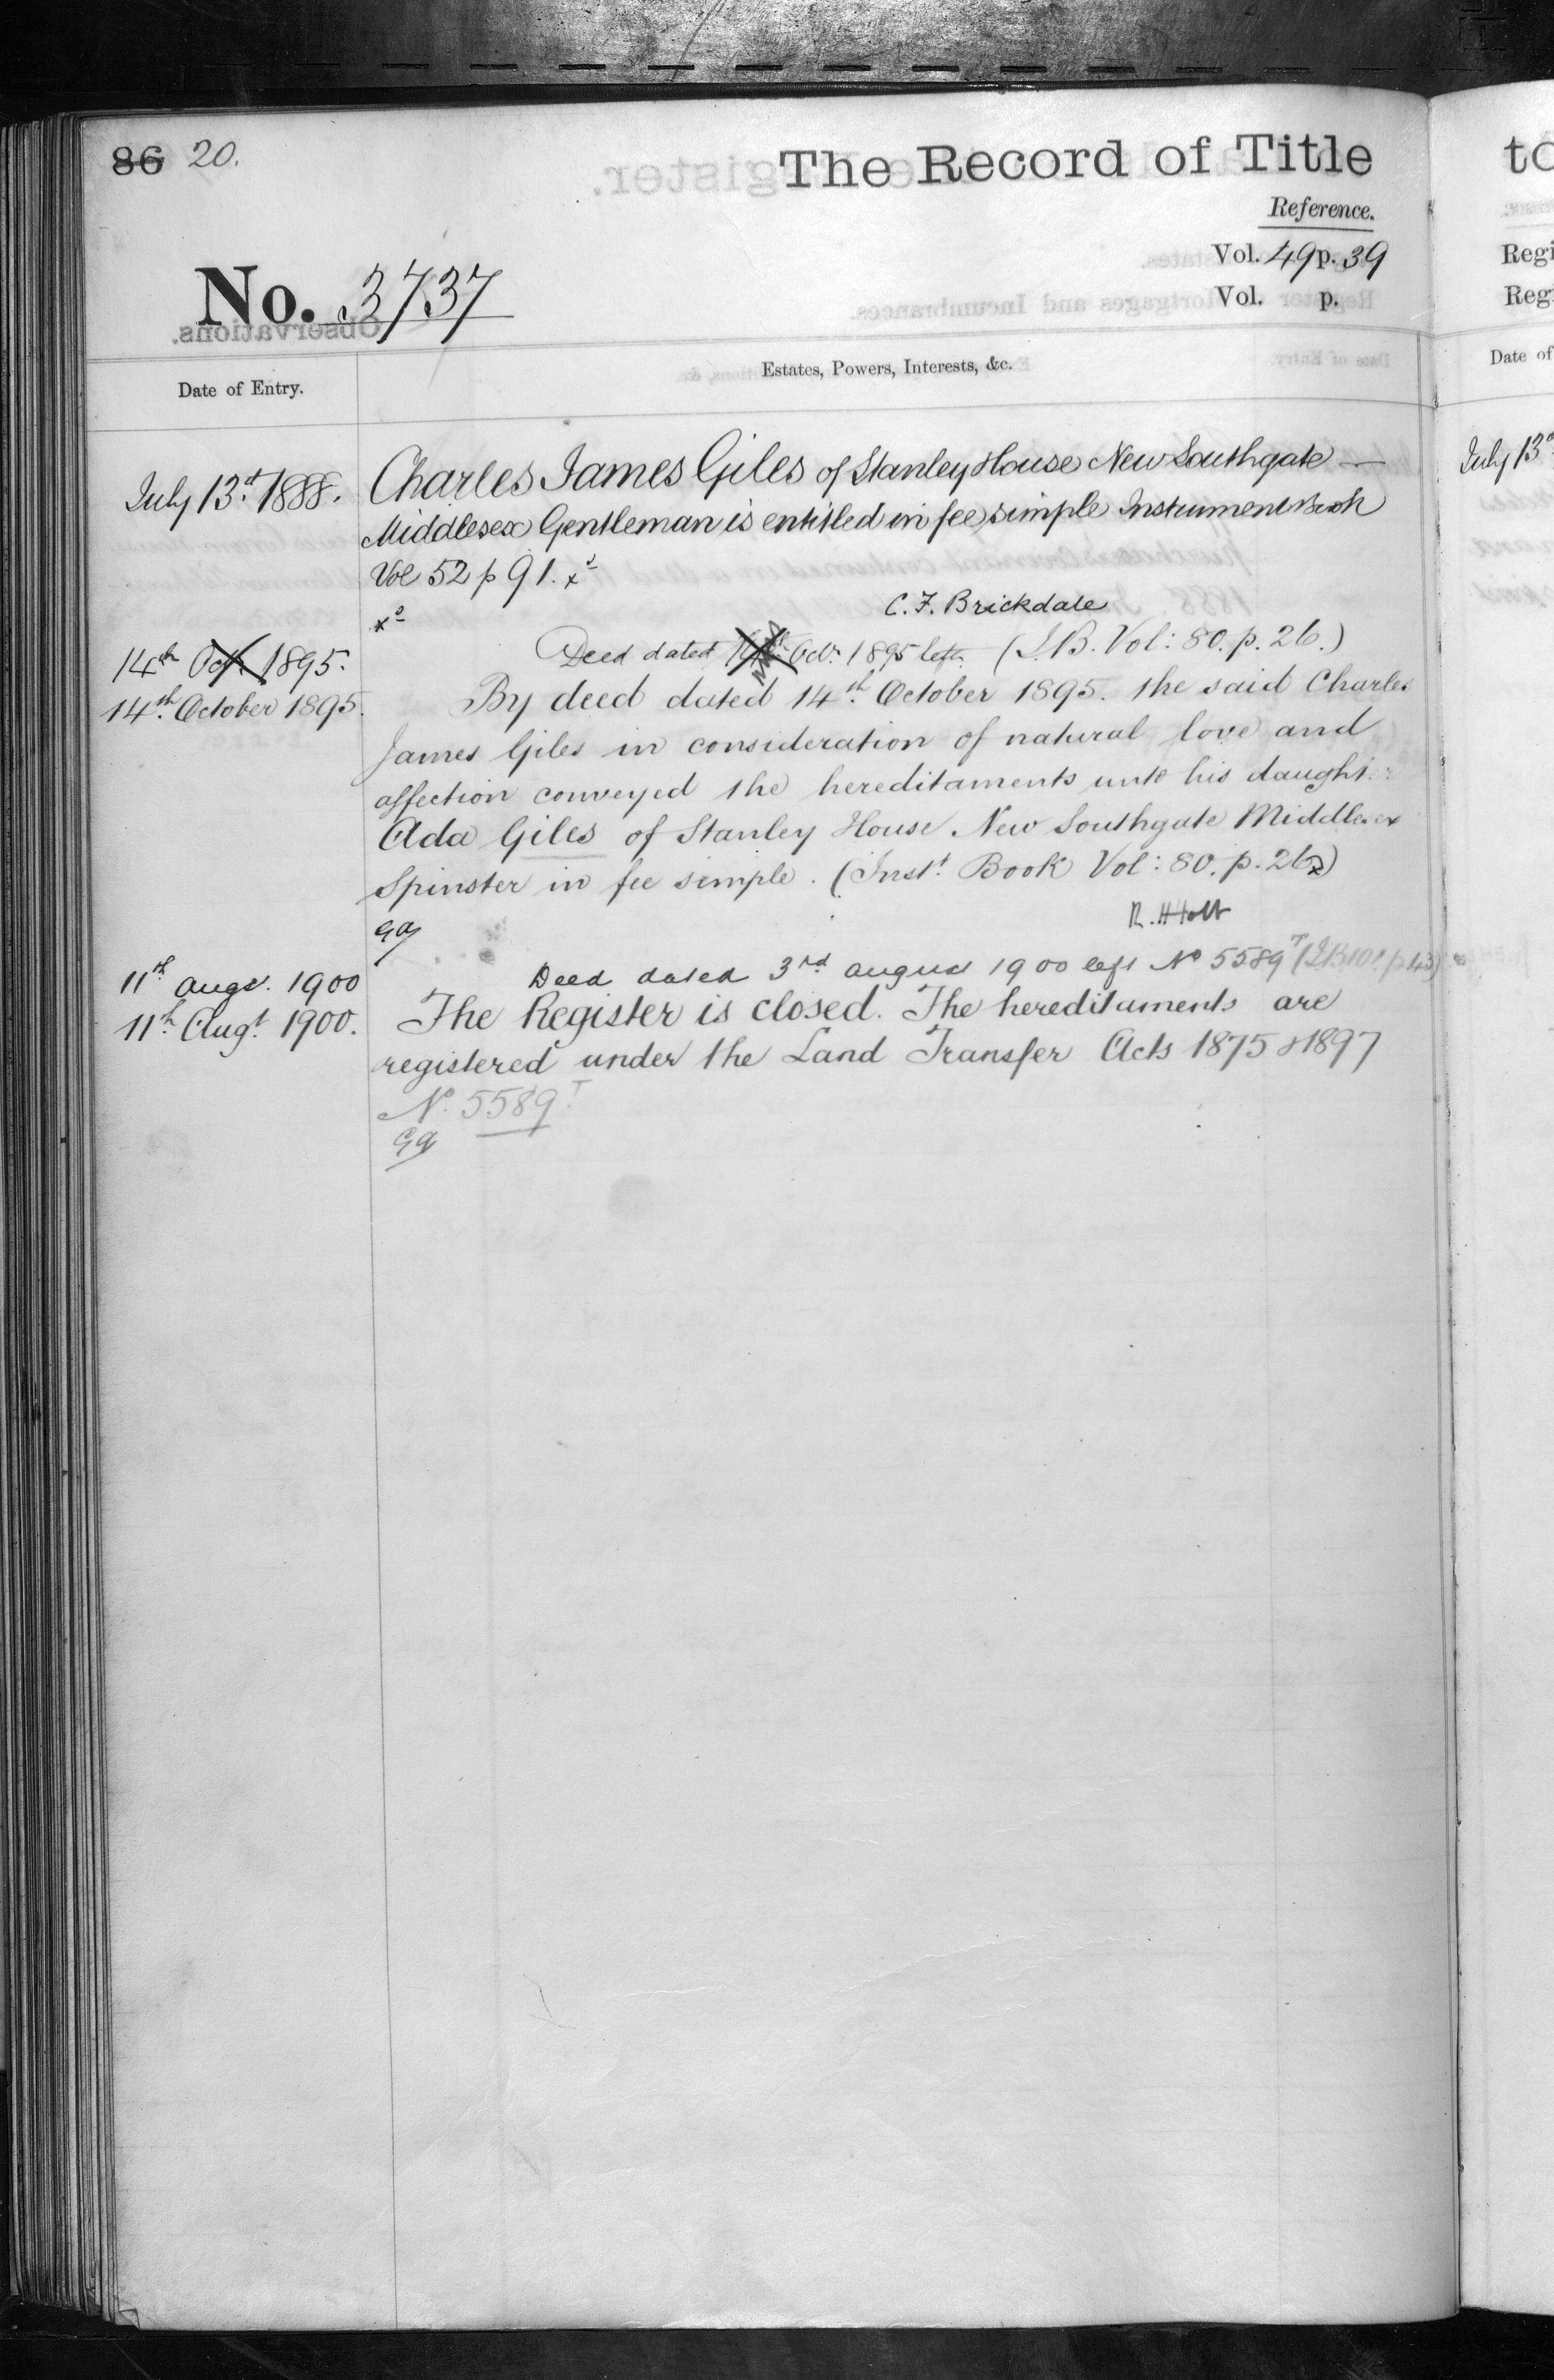 86 20.
The Record of Title
Reference.
Vol. 49 p. 39
No. 3737
Vol. p.
Date of Entry.
Estates, Powers, Interests, &c.
July 13th 1888.
Charles James Giles of Stanley House New Southgate —
Middlesex Gentleman is entitled in fee simple Instrument Book
Vol 52 p 91. x
C. F. Brickdale
14th Oct. 1895.
Deed dated Oct. 1895 left. (I.B. Vol: 80. p. 26.)
14th October 1895.
By deed dated 14th October 1895. the said Charles
James Giles in consideration of natural love and
affection conveyed the hereditaments unto his daughter
Ada Giles of Stanley House New Southgate Middlesex
Spinster in fee simple. (Inst. Book Vol: 80. p. 26)
R. Holt
11th Augt. 1900
Deed dated 3rd August 1900 left No 5589T (I.B. 101 p 43)
11th Augt. 1900.
The Register is closed. The hereditaments are
registered under the Land Transfer Acts 1875 & 1897
No. 5589T
to
Regi
Reg
Date of
July 13